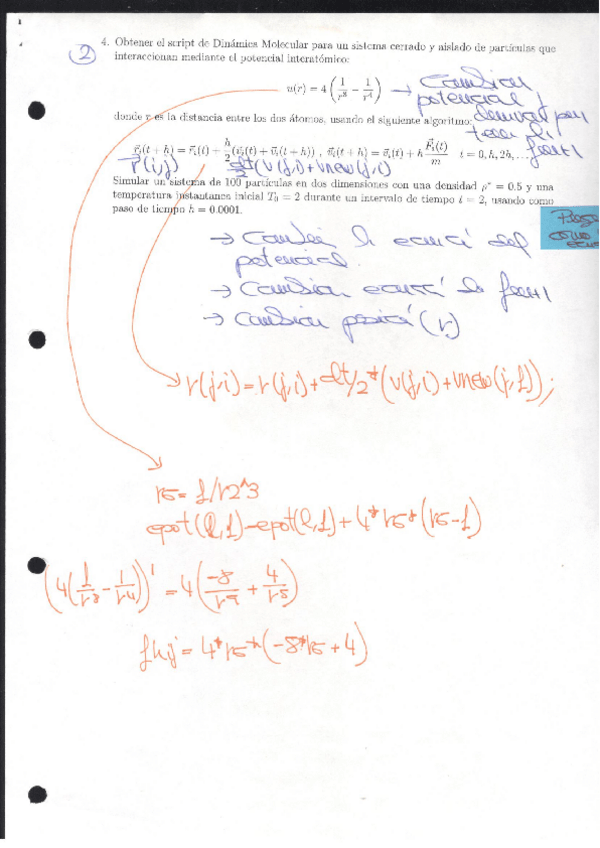 ② 4. Obtener el script de Dinámica Molecular para un sistema cerrado y aislado de partículas que
interaccionan mediante el potencial interatómico:
u(r) = 4 ( 1/r⁸ − 1/r⁴ ) → Cambiar
potencial
donde r es la distancia entre los dos átomos, usando el siguiente algoritmo:
r⃗ᵢ(t + h) = r⃗ᵢ(t) + h/2 (v⃗ᵢ(t) + v⃗ᵢ(t + h)) , v⃗ᵢ(t + h) = v⃗ᵢ(t) + h F⃗ᵢ(t)/m t = 0, h, 2h, ...
r(i,j) dt/2 (v(j,i) + vnew(j,i)
Simular un sistema de 100 partículas en dos dimensiones con una densidad ρ* = 0.5 y una
temperatura instantánea inicial T₀ = 2 durante un intervalo de tiempo t = 2, usando como
paso de tiempo h = 0.0001.
del
potencial
→ Cambiar
→ Cambiar (r)
r(j,i) = r(j,i) + dt/2*(v(j,i) + vnew(j,1));
r6 = 1/r2^3
epot(l,1) = epot(l,1) + 4*r6*(r6-1)
(4(1/r⁸ − 1/r⁴))' = 4(−8/r⁹ + 4/r⁵)
fkij = 4*r6*(−8*r6 + 4)